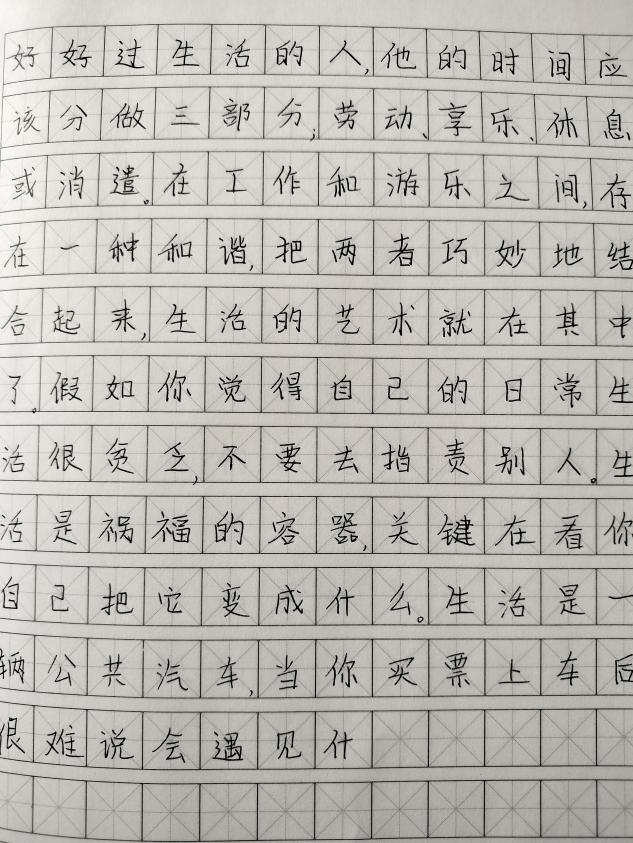 好好过生活的人,他的时间应
该分做三部分;劳动、享乐、休息
或消遣。在工作和游乐之间,存
在一种和谐,把两者巧妙地结
合起来,生活的艺术就在其中
了。假如你觉得自己的日常生
活很贫乏,不要去指责别人。生
活是祸福的容器,关键在看你
自己把它变成什么。生活是一
辆公共汽车,当你买票上车后
很难说会遇见什